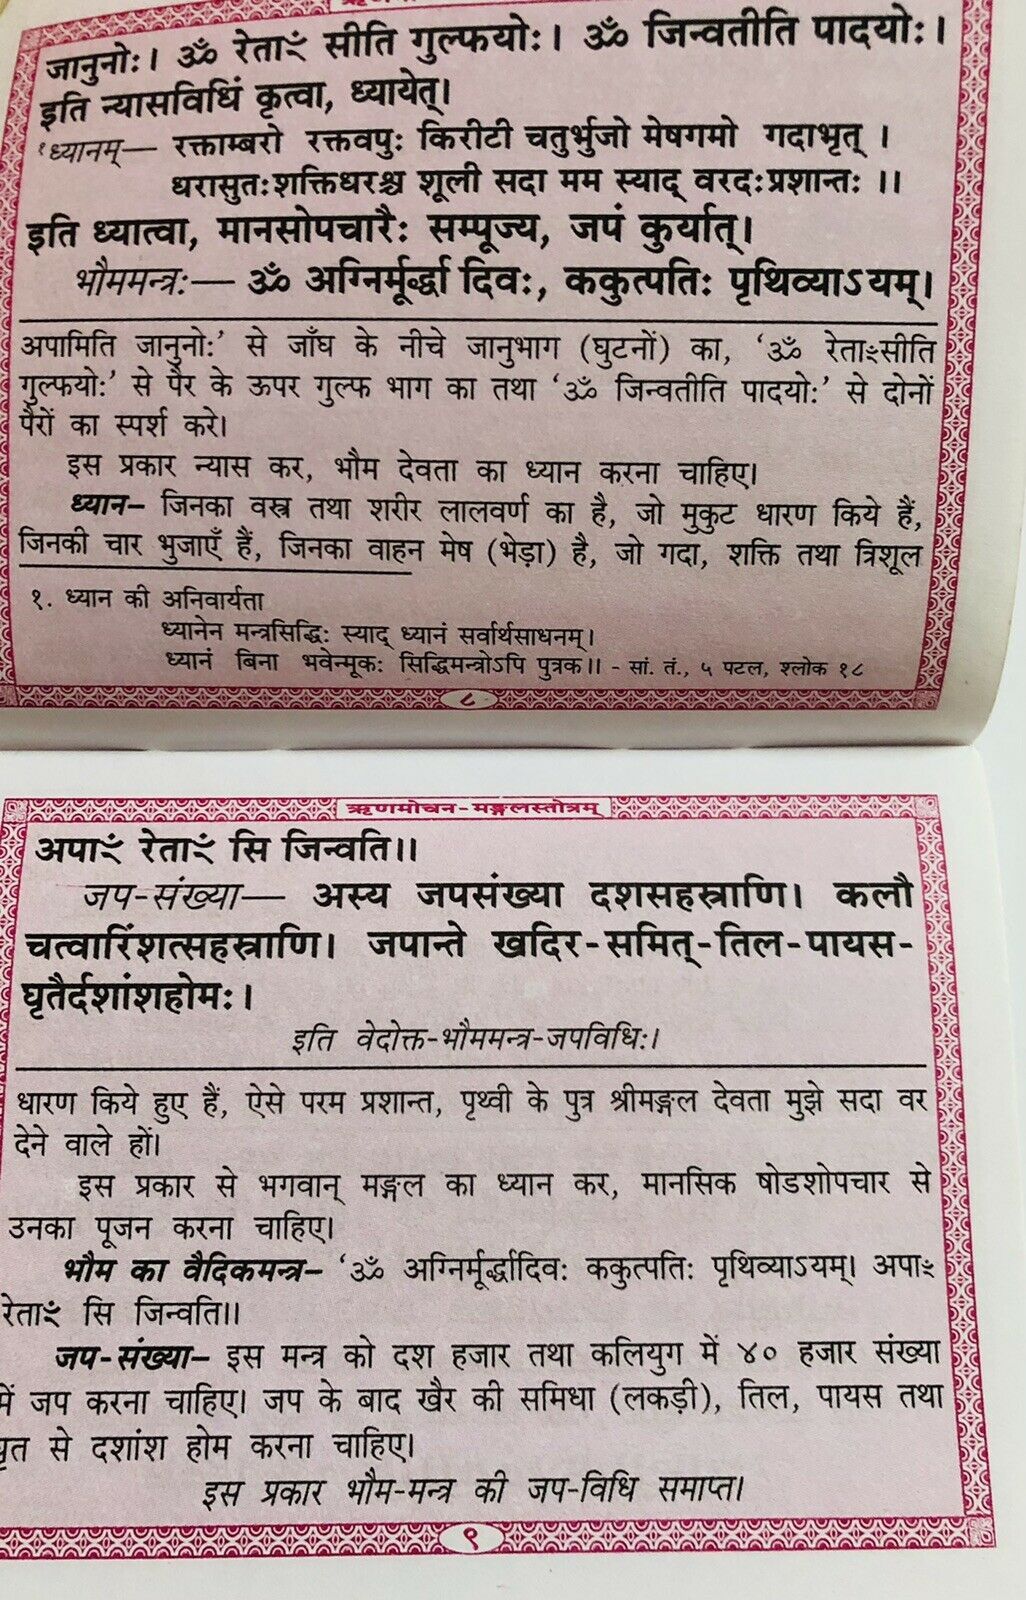 जानुनोः। ॐ रेताꣳ सीति गुल्फयोः। ॐ जिन्वतीति पादयोः।
इति न्यासविधिं कृत्वा, ध्यायेत्।
१ध्यानम्— रक्ताम्बरो रक्तवपुः किरीटी चतुर्भुजो मेषगमो गदाभृत् ।
धरासुतःशक्तिधरश्च शूली सदा मम स्याद् वरदःप्रशान्तः ।।
इति ध्यात्वा, मानसोपचारैः सम्पूज्य, जपं कुर्यात्।
भौममन्त्रः— ॐ अग्निर्मूर्द्धा दिवः, ककुत्पतिः पृथिव्याऽयम्।
अपामिति जानुनोः’ से जाँघ के नीचे जानुभाग (घुटनों) का, ‘ॐ रेताꣳसीति
गुल्फयोः’ से पैर के ऊपर गुल्फ भाग का तथा ‘ॐ जिन्वतीति पादयोः’ से दोनों
पैरों का स्पर्श करे।
इस प्रकार न्यास कर, भौम देवता का ध्यान करना चाहिए।
ध्यान– जिनका वस्त्र तथा शरीर लालवर्ण का है, जो मुकुट धारण किये हैं,
जिनकी चार भुजाएँ हैं, जिनका वाहन मेष (भेड़ा) है, जो गदा, शक्ति तथा त्रिशूल
१. ध्यान की अनिवार्यता
ध्यानेन मन्त्रसिद्धिः स्याद् ध्यानं सर्वार्थसाधनम्।
ध्यानं बिना भवेन्मूकः सिद्धिमन्त्रोऽपि पुत्रक।। - सां. तं., ५ पटल, श्लोक १८
८
ऋणमोचन-मङ्गलस्तोत्रम्
अपाꣳ रेताꣳ सि जिन्वति।।
जप-संख्या— अस्य जपसंख्या दशसहस्राणि। कलौ
चत्वारिंशत्सहस्राणि। जपान्ते खदिर-समित्-तिल-पायस-
घृतैर्दशांशहोमः।
इति वेदोक्त-भौममन्त्र-जपविधिः।
धारण किये हुए हैं, ऐसे परम प्रशान्त, पृथ्वी के पुत्र श्रीमङ्गल देवता मुझे सदा वर
देने वाले हों।
इस प्रकार से भगवान् मङ्गल का ध्यान कर, मानसिक षोडशोपचार से
उनका पूजन करना चाहिए।
भौम का वैदिकमन्त्र– ‘ॐ अग्निर्मूर्द्धादिवः ककुत्पतिः पृथिव्याऽयम्। अपाꣳ
रेताꣳ सि जिन्वति।।
जप-संख्या– इस मन्त्र को दश हजार तथा कलियुग में ४० हजार संख्या
में जप करना चाहिए। जप के बाद खैर की समिधा (लकड़ी), तिल, पायस तथा
घृत से दशांश होम करना चाहिए।
इस प्रकार भौम-मन्त्र की जप-विधि समाप्त।
९